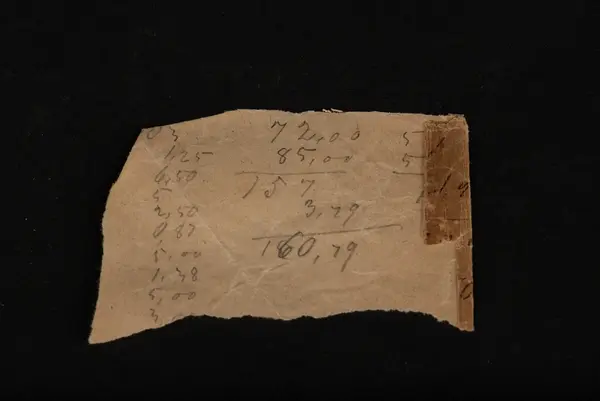 03
1,25
6,50
5
2,50
0,87
5,00
1,38
5,00
3,00
72,00
85,00
157
3,79
160,79
5
5